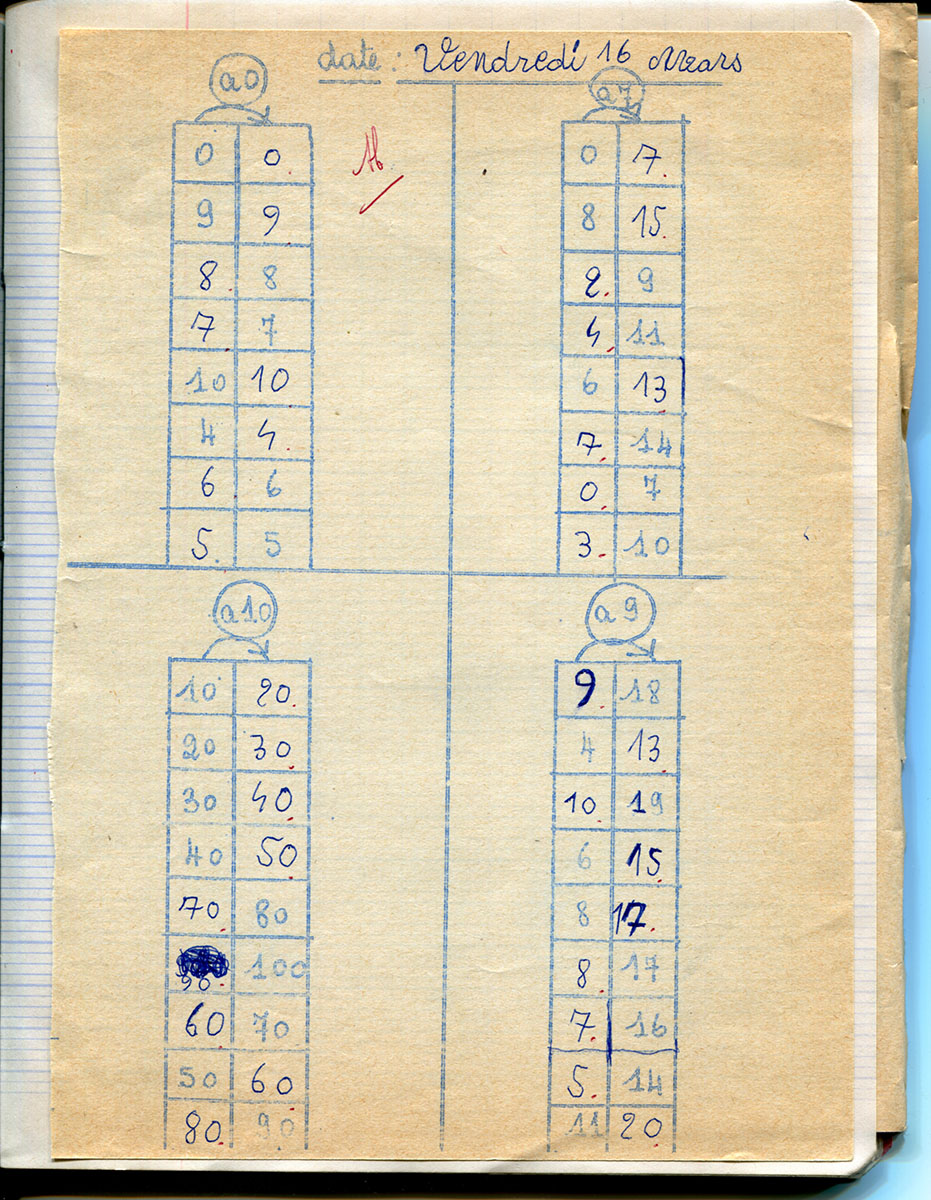 date : Vendredi 16 Mars
a0
0 0
9 9
8 8
7 7
10 10
4 4
6 6
5 5
a7
0 7
8 15
2 9
4 11
6 13
7 14
0 7
3 10
a10
10 20
20 30
30 40
40 50
70 80
90 100
60 70
50 60
80 90
a9
9 18
4 13
10 19
6 15
8 17
8 17
7 16
5 14
11 20